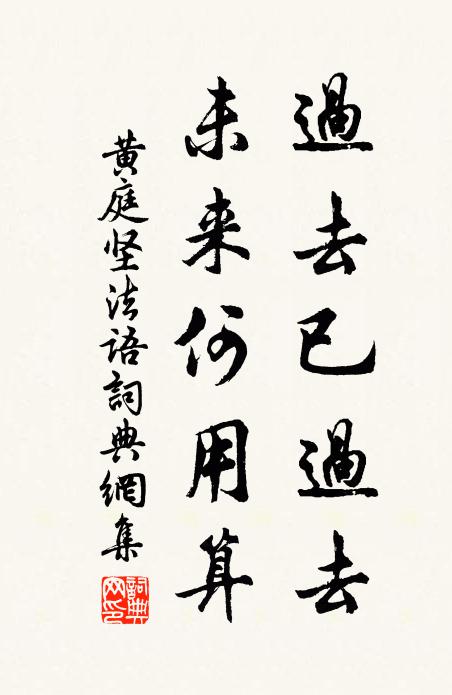 過去已過去
未来何用算
黄庭坚法语詞典網集
詞典网印